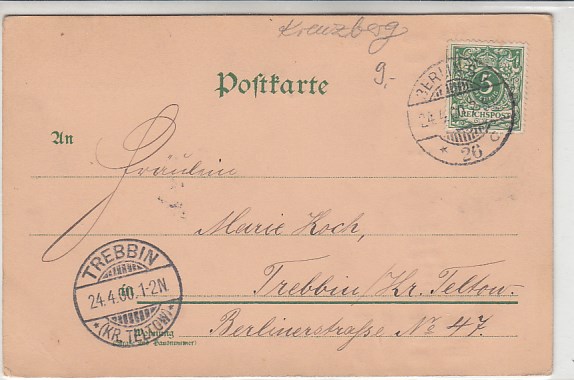 Kreuzberg
9.-
Postkarte
BERLIN
24.4.00
* 26 c
5
REICHSPOST
An
Fräulein
Marie Koch,
TREBBIN
24.4.00.1-2N.
*(KR. TELTOW)*
in Trebbin/Kr. Teltow.
Wohnung
Berlinerstraße No 47.